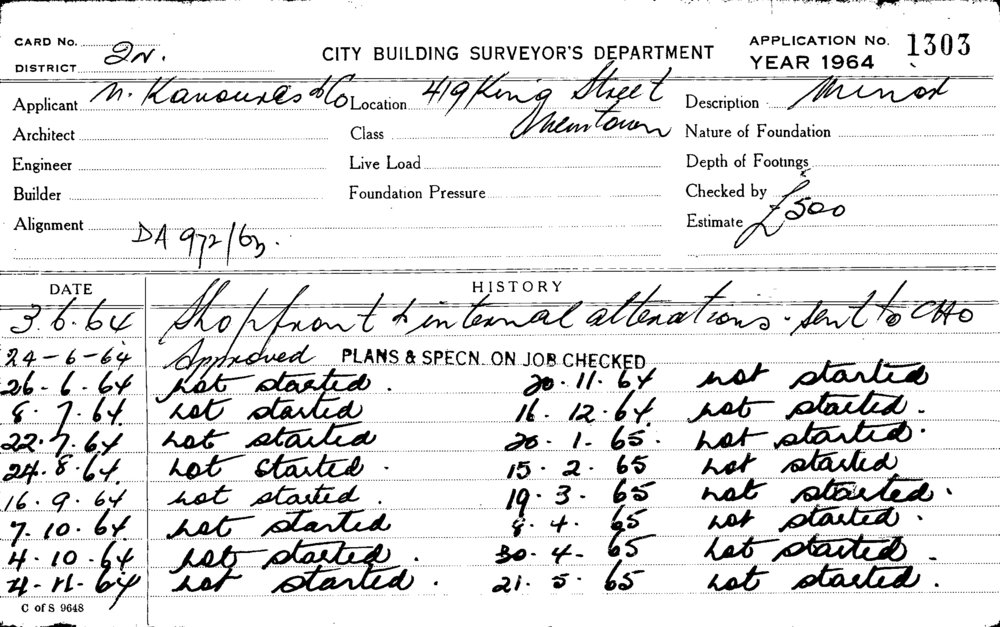 CARD No. 2N. CITY BUILDING SURVEYOR'S DEPARTMENT APPLICATION No. 1303
DISTRICT YEAR 1964
Applicant N. Kavouras & Co Location 419 King Street Description Minor
Architect Class Newtown Nature of Foundation
Engineer Live Load Depth of Footings
Builder Foundation Pressure Checked by
Alignment DA 972/63. Estimate £500
DATE HISTORY
3.6.64 Shopfront & internal alterations - sent to CHO
24-6-64 Approved PLANS & SPECN. ON JOB CHECKED
26.6.64 not started. 20.11.64 not started
8.7.64 not started 16.12.64 not started.
22.7.64 not started 20.1.65. not started.
24.8.64. not started. 15.2.65 not started
16.9.64 not started. 19.3.65 not started.
7.10.64 not started 8.4.65 not started.
4.10.64 not started. 30.4.65 not started.
4.11.64 not started. 21.5.65 not started.
C of S 9648